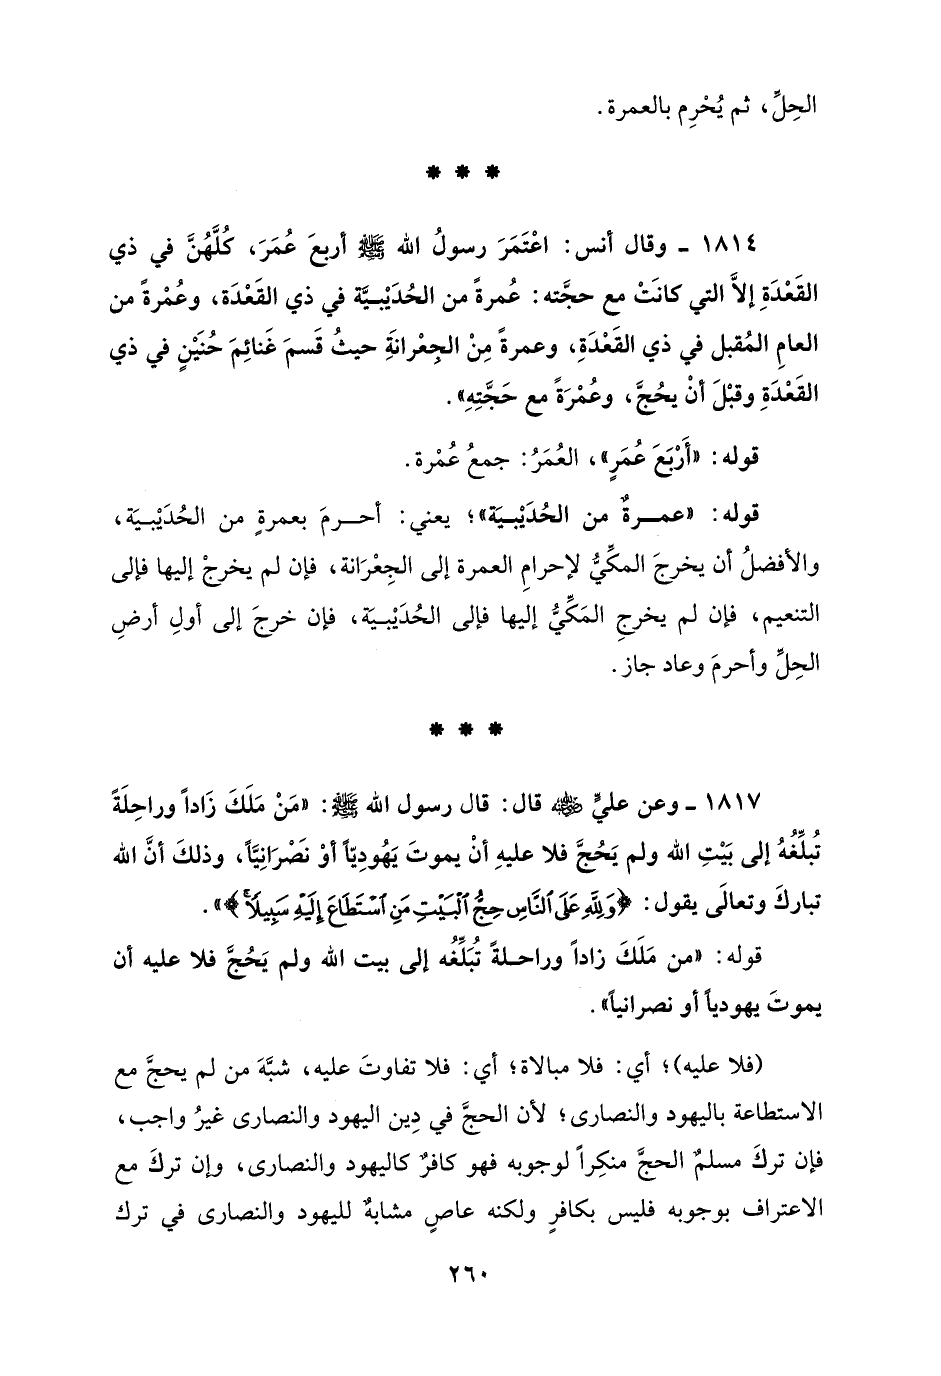 الحِلِّ، ثم يُحْرِم بالعمرة.
* * *
١٨١٤ ـ وقال أنس: اعْتَمَرَ رسولُ الله ﷺ أربعَ عُمَرَ، كُلَّهُنَّ في ذي
القَعْدَةِ إلاَّ التي كانَتْ مع حجَّته: عُمرةً من الحُدَيْبيَّة في ذي القَعْدَة، وعُمْرةً من
العامِ المُقبل في ذي القَعْدَةِ، وعمرةً مِنْ الجِعْرانةَِ حيثُ قَسمَ غَنائِمَ حُنَيْنٍ في ذي
القَعْدَةِ وقبْلَ أنْ يحُجَّ، وعُمْرَةً مع حَجَّتِهِ».
قوله: «أَرْبَعَ عُمَرٍ»، العُمَرُ: جمعُ عُمْرة.
قوله: «عمـرةٌ من الحُدَيْبـيَة»؛ يعني: أحـرمَ بعمرةٍ من الحُدَيْبـيَة،
والأفضلُ أن يخرجَ المكيُّ لإحرامِ العمرة إلى الجِعْرَانة، فإن لم يخرجْ إليها فإلى
التنعيم، فإن لم يخرجِ المَكِّيُّ إليها فإلى الحُدَيْبـية، فإن خرجَ إلى أولِ أرضِ
الحِلِّ وأحرمَ وعاد جاز.
* * *
١٨١٧ ـ وعن عليٍّ ﵁ قال: قال رسول الله ﷺ: «مَنْ مَلَكَ زَاداً وراحِلَةً
تُبلِّغُهُ إلى بَيْتِ الله ولم يَحُجَّ فلا عليهِ أنْ يموتَ يَهُودِيّاً أوْ نَصْرَانِيَّاً، وذلكَ أنَّ الله
تباركَ وتعالَى يقول: ﴿وَلِلَّهِ عَلَى ٱلنَّاسِ حِجُّ ٱلْبَيْتِ مَنِ ٱسْتَطَاعَ إِلَيْهِ سَبِيلًا﴾».
قوله: «من مَلَكَ زاداً وراحـلةً تُبَلِّغُه إلى بيت الله ولم يَحُجَّ فلا عليه أن
يموتَ يهودياً أو نصرانياً».
(فلا عليه)؛ أي: فلا مبالاة؛ أي: فلا تفاوتَ عليه، شبَّهَ من لم يحجَّ مع
الاستطاعة باليهود والنصارى؛ لأن الحجَّ في دِين اليهود والنصارى غيرُ واجب،
فإن تركَ مسلمٌ الحجَّ منكِراً لوجوبه فهو كافرٌ كاليهود والنصارى، وإن تركَ مع
الاعتراف بوجوبه فليس بكافرٍ ولكنه عاصٍ مشابهٌ لليهود والنصارى في ترك
٢٦٠